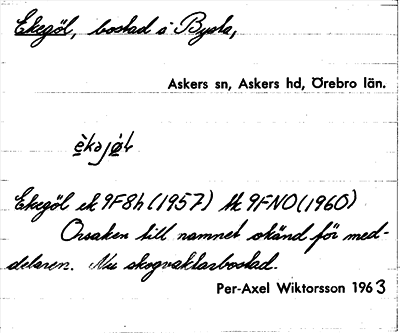 Ekegöl, bostad å Bysta,
Askers sn, Askers hd, Örebro län.
Ekegöl ek 9F8h (1957) tk 9FNO (1960)
Orsaken till namnet okänd för med-
delaren. Nu skogvaktarbostad.
Per-Axel Wiktorsson 1963